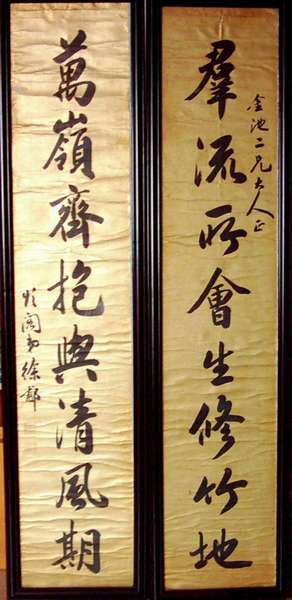 金池二兄大人正
羣流所會生修竹地
萬嶺齊抱與清風期
頌閣弟徐郙